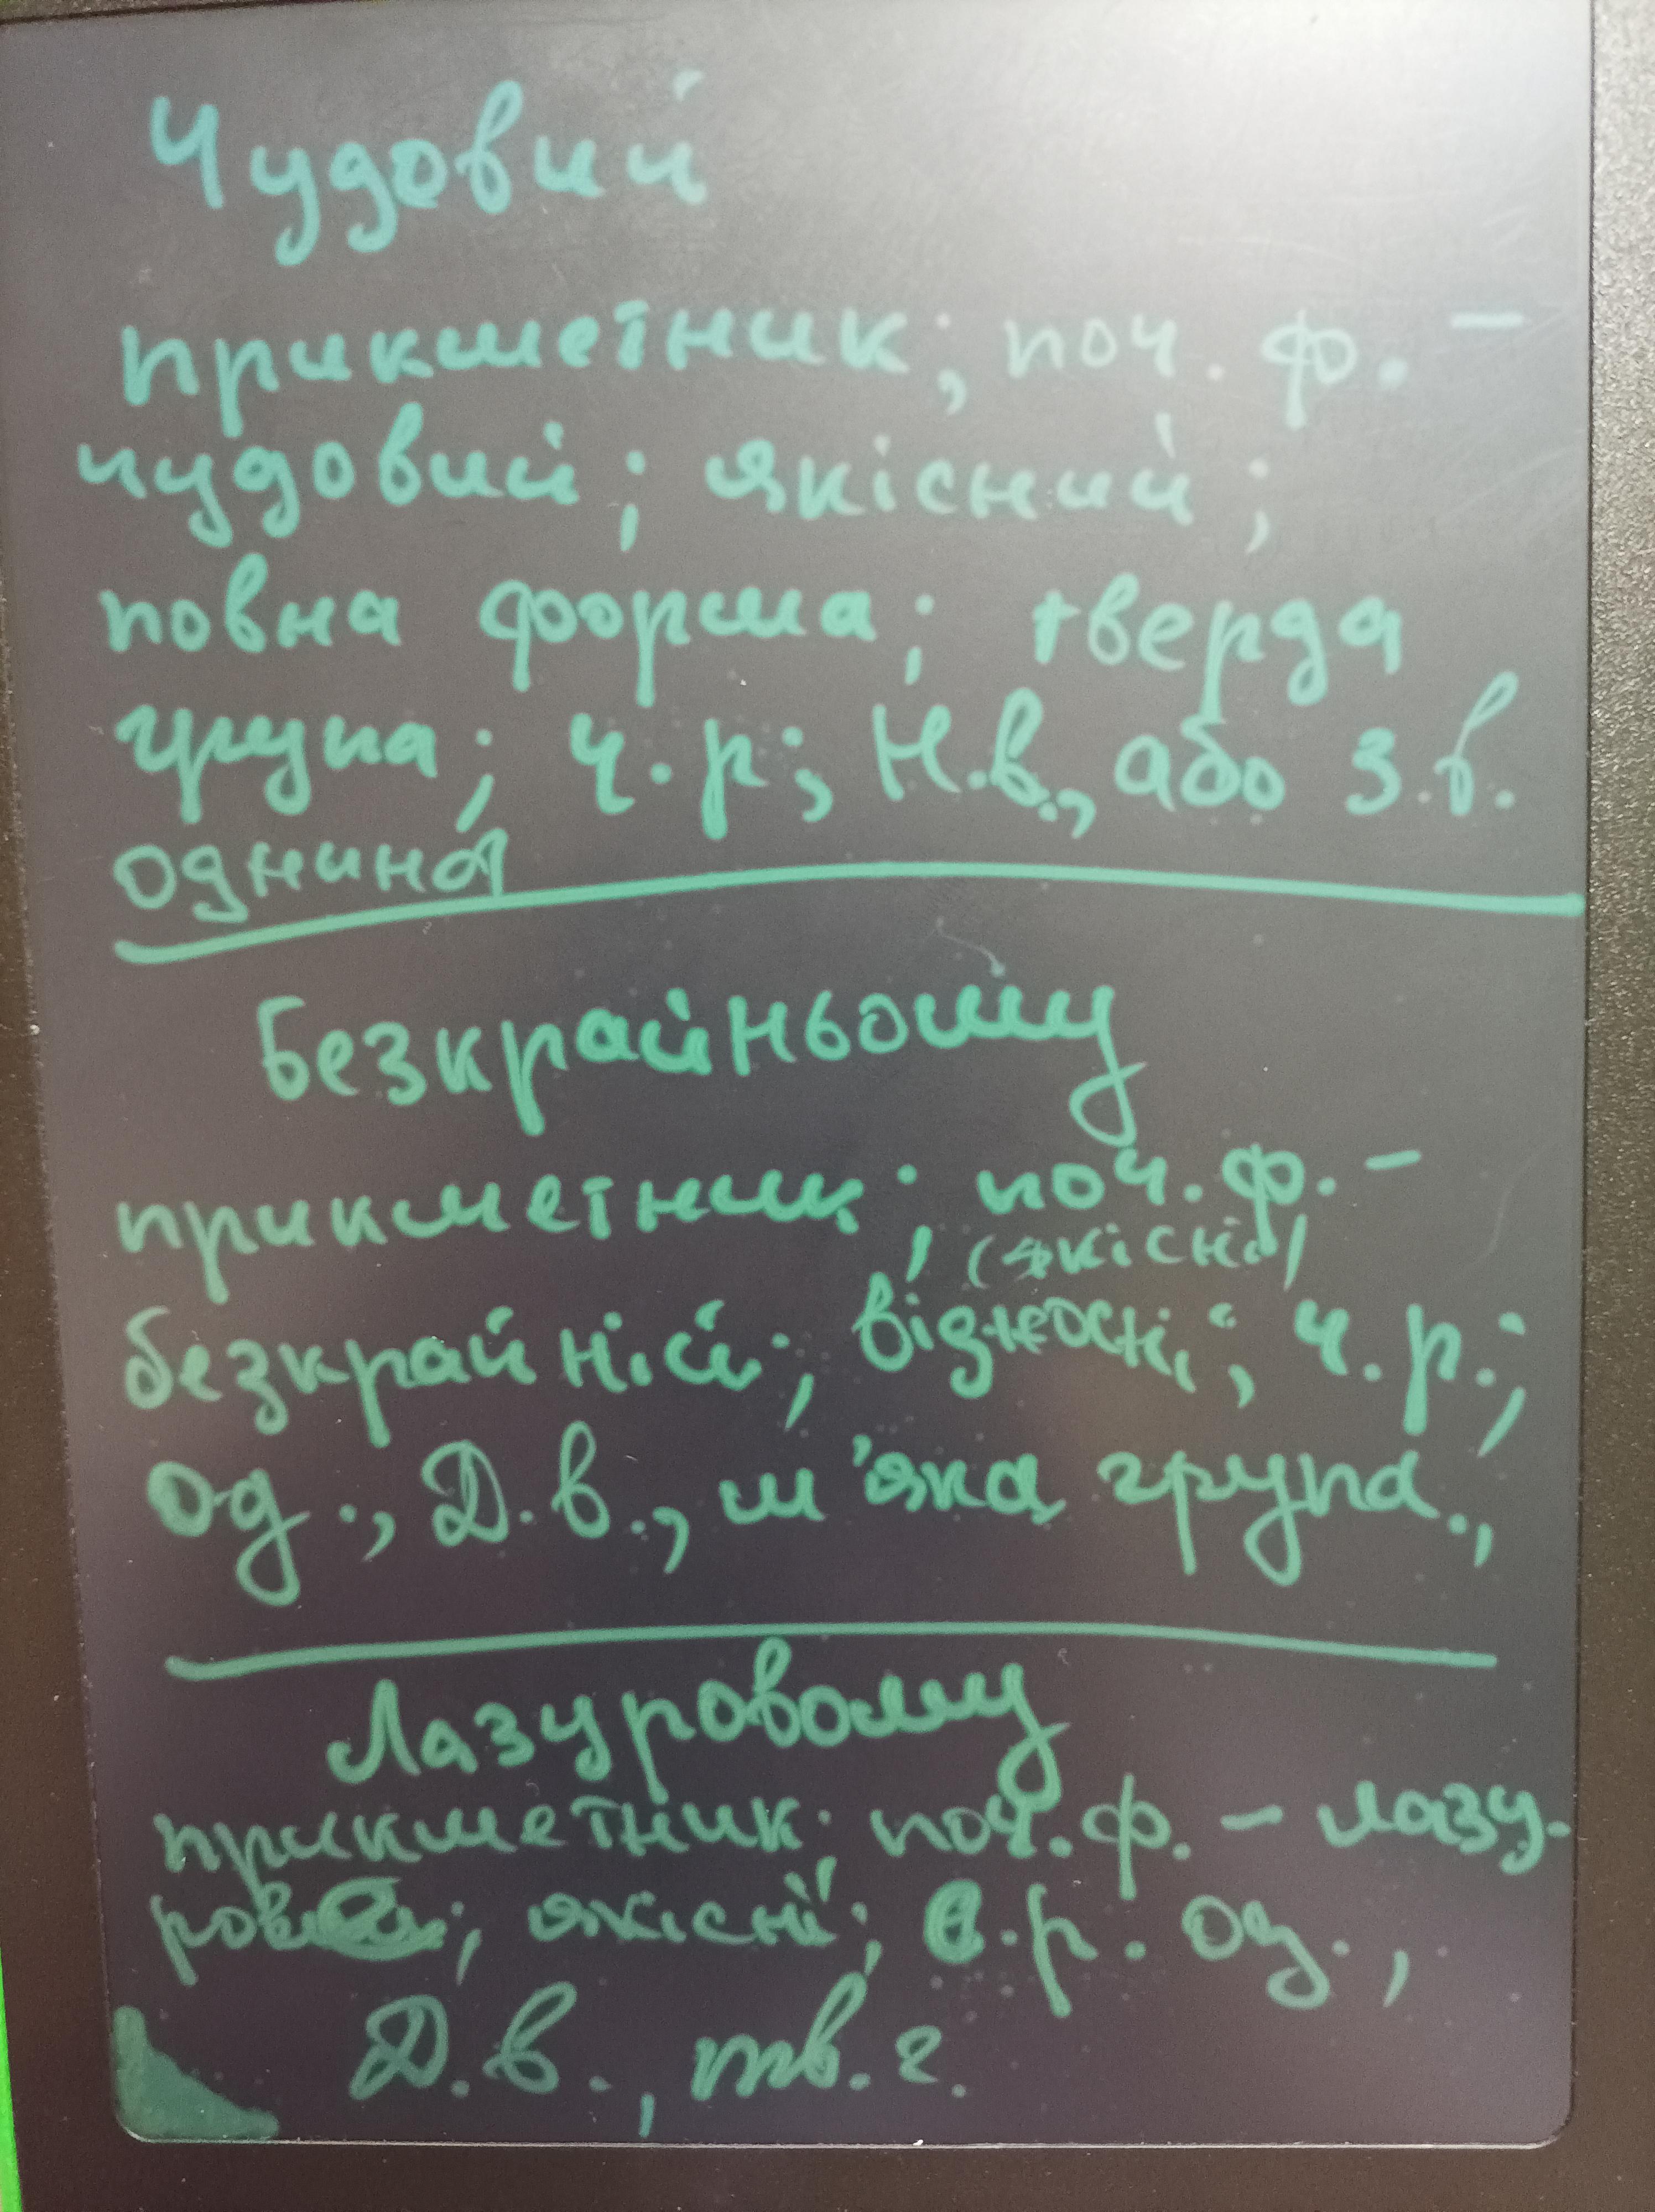 Чудовий
прикметник; поч. ф. –
чудовий; якісний;
повна форма; тверда
група; ч.р; Н.в., або З.в.
однина
Безкрайньому
прикметник; поч. ф. –
(якісні)
безкрайній; відносні; ч.р.;
од., Д.в., м'яка група.,
Лазуровому
прикметник; поч. ф. – лазу-
якісні; с.р. од.,
Д.в., тв. г.